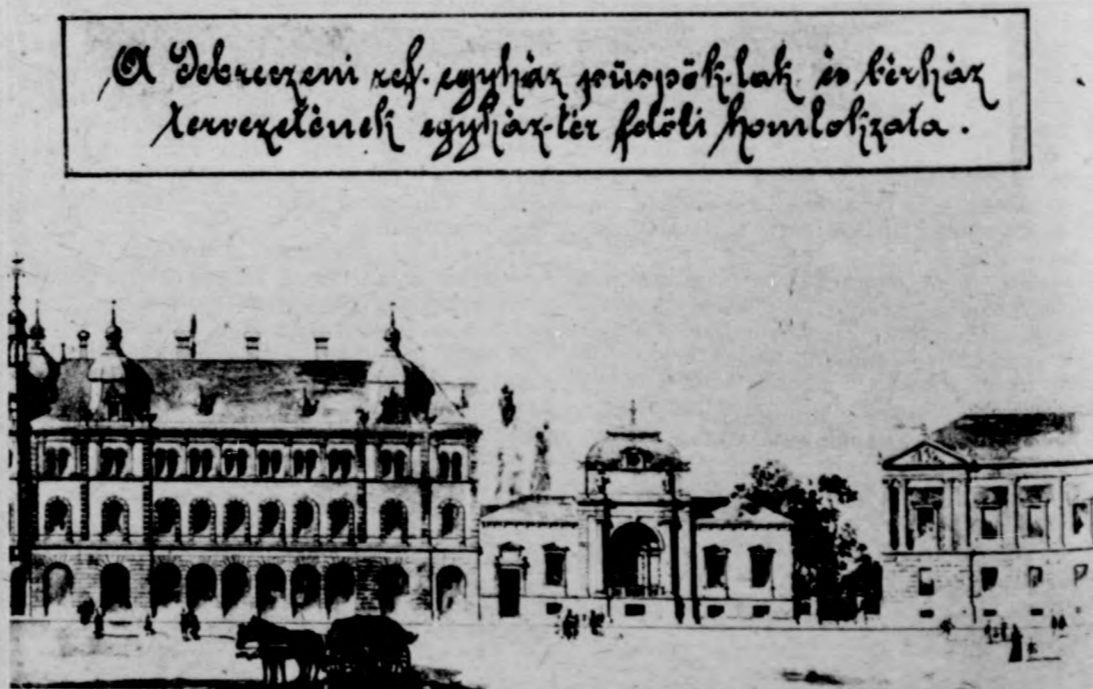 A Debreczeni ref. egyház püspök-lak és bérház
tervezetének egyház-tér felőli homlokzata.